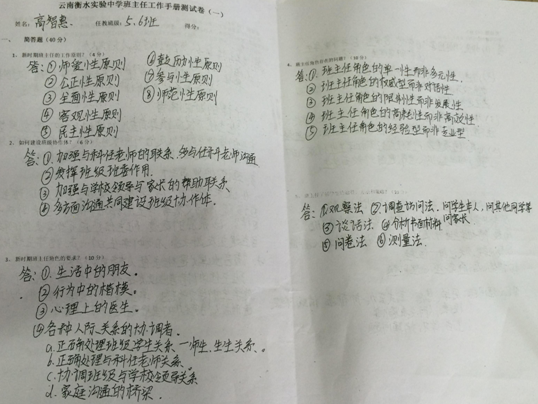 云南衡水实验中学班主任工作手册测试卷（一）
姓名：高智惠 任教班级：5.6班 得分：
一、简答题（40分）
答：①师金性原则
②公正性原则
③全面性原则
④客观性原则
⑤民主性原则
⑥鼓励性原则
⑦参与性原则
⑧师范性原则
答：①加强与科任老师的联系，多与任科老师沟通
②发挥班级班委作用
③加强与学校领导与家长的帮助联系
④多方面沟通共同建设班级协作体.
3、新时期班主任角色的要素？（10分）
答：①.生活中的朋友.
②行为中的楷模.
③心理上的医生.
④各种人际关系的协调者.
a.正确处理班级学生关系，一师生，生生关系.
b.正确处理与科任老师关系.
c.协调班级与学校领导关系
d.家庭沟通的桥梁.
答：①.班主任角色的单一性而非多元性.
②班主任角色的权威型而非对话性
③班主任角色的限制性而非发展性
④班主任角色的
⑤班主任角色的经验型而非专业型
答：①观察法 ②调查访问法.问学生本人，问其他同学等
问家长
③谈话法 ④分析书面材料
⑤问卷法 ⑥测量法.